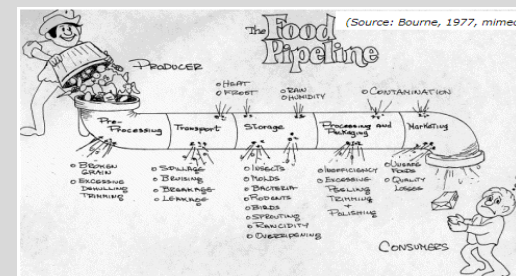 The Food
Pipeline
(Source: Bourne, 1977, mimeo
PRODUCER
o HEAT
o FROST
o RAIN
o HUMIDITY
o CONTAMINATION
Pre-
Processing
Transport
Storage
Processing and
Packaging
Marketing
o BROKEN
GRAIN
o EXCESSIVE
DEHULLING
TRIMMING
o SPILLAGE
o BRUISING
o BREAKAGE
o LEAKAGE
o INSECTS
o MOLDS
o BACTERIA
o RODENTS
o BIRDS
o SPROUTING
o RANCIDITY
o OVERRIPENING
o INEFFICIENCY
o EXCESSIVE
PEELING
TRIMMING
+
POLISHING
o UNSAFE
FOODS
o QUALITY
LOSSES
CONSUMERS